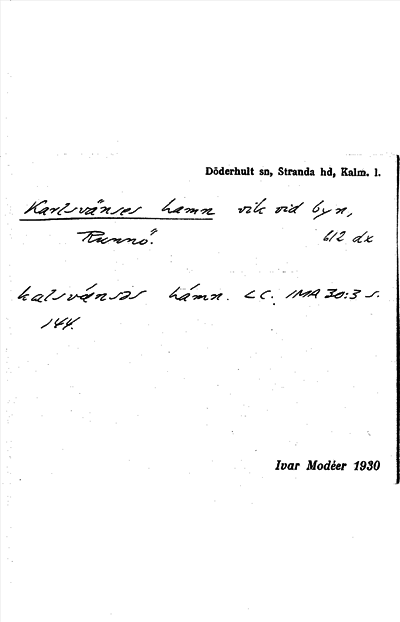 Döderhult sn, Stranda hd, Kalm. l.
Karlsvänses hamn vik vid byn,
Runnö. 612 dx
kalsvánsəs hámn. LC. IMA 30:3 s.
144.
Ivar Modéer 1930